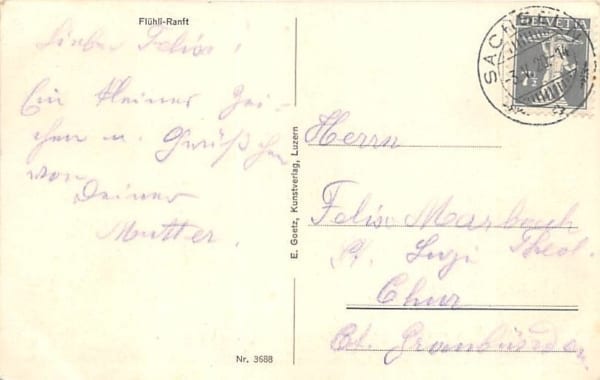 Flühli-Ranft
Lieber Felix!
Ein kleines Zei-
chen u. Grüßchen
von
Deiner
Mutter.
Nr. 3688
E. Goetz, Kunstverlag, Luzern
HELVETIA
7½
SACHSELN
Herrn
Felix Marbach
St. Luzi Theol.
Chur
Ct. Graubünden